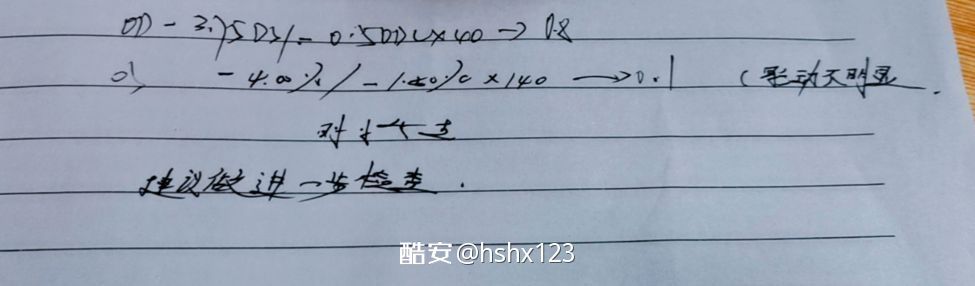 OD -3.75DS/-0.50DC×40→0.8
OS -4.00%/-1.50%×140→0.1 (影动不明显
建议做进一步检查.
酷安@hshx123